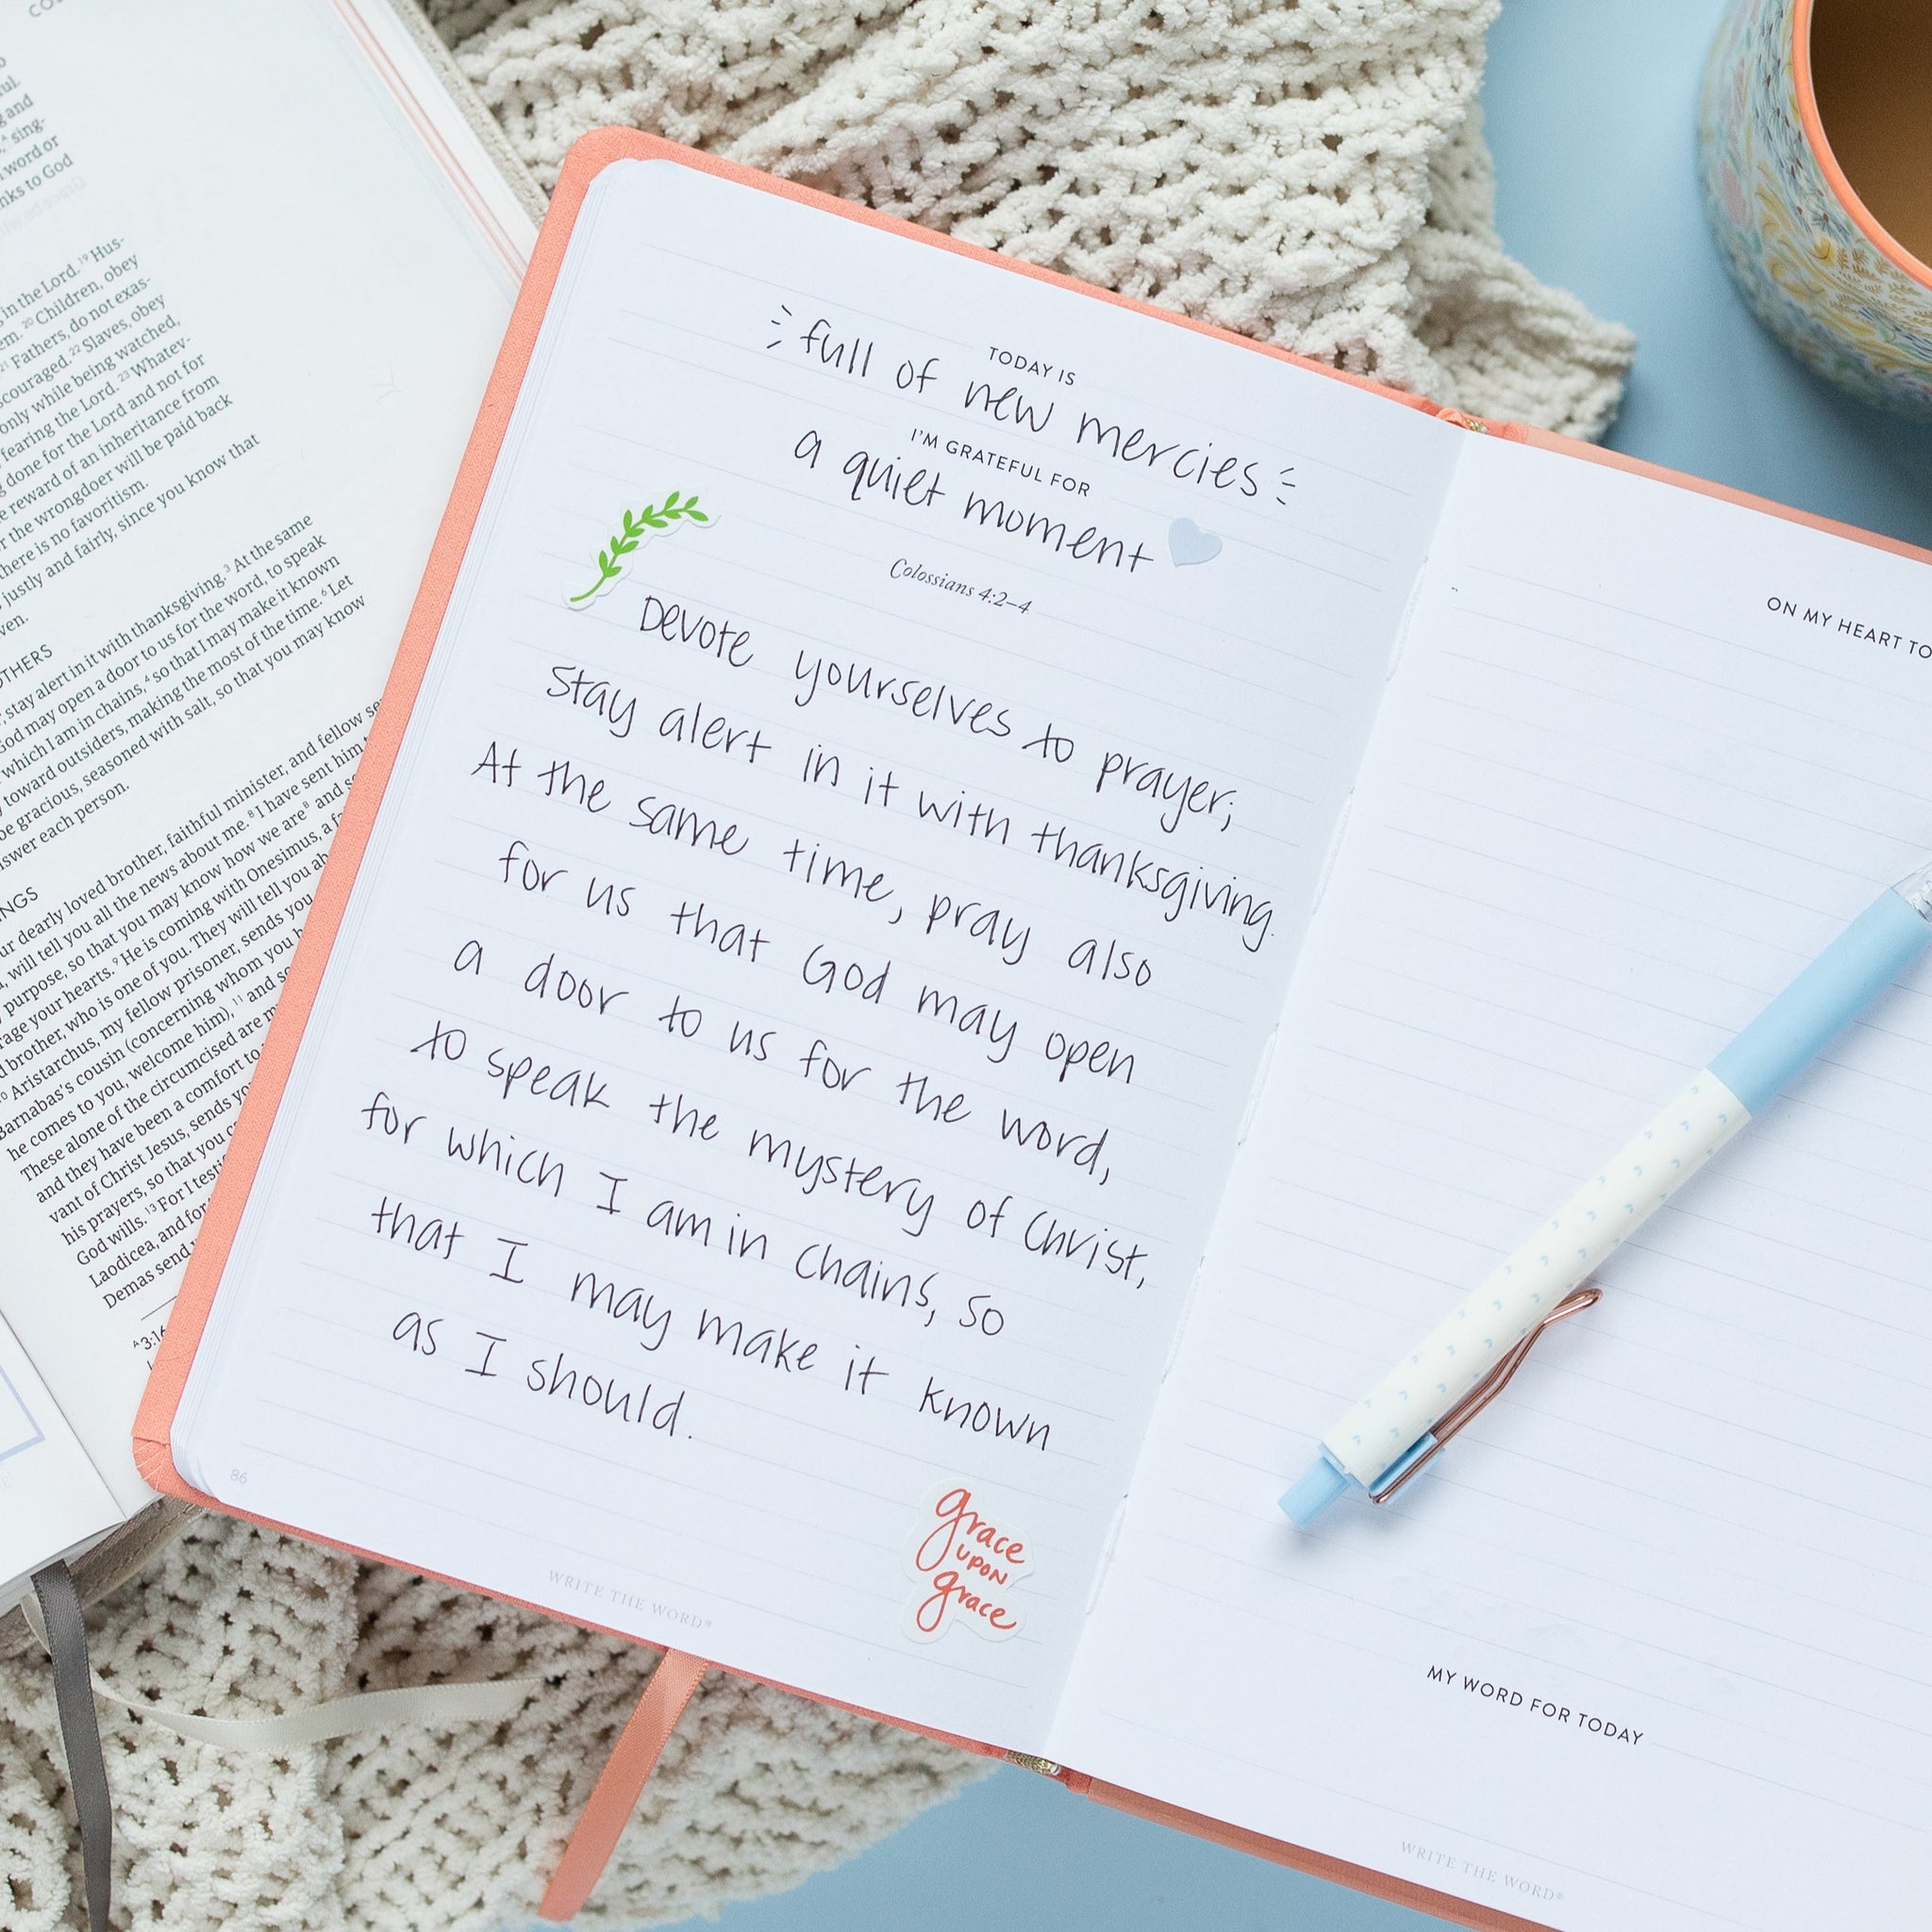 in the Lord. ¹⁹ Hus-
²⁰ Children, obey
²¹ Fathers, do not exas-
²² Slaves, obey
only while being watched,
fearing the Lord. ²³ Whatev-
done for the Lord and not for
reward of an inheritance from
the wrongdoer will be paid back
there is no favoritism.
justly and fairly, since you know that
stay alert in it with thanksgiving. ³ At the same
God may open a door to us for the word, to speak
which I am in chains, ⁴ so that I may make it known
toward outsiders, making the most of the time. ⁶ Let
be gracious, seasoned with salt, so that you may know
each person.
dearly loved brother, faithful minister, and fellow
will tell you all the news about me. ⁸ I have sent him
purpose, so that you may know how we are ⁸ and
your hearts. ⁹ He is coming with Onesimus, a
brother, who is one of you. They will tell you
¹⁰ Aristarchus, my fellow prisoner, sends you
Barnabas's cousin (concerning whom you
he comes to you, welcome him), ¹¹ and so
These alone of the circumcised are
and they have been a comfort to
vant of Christ Jesus, sends you
his prayers, so that you
God wills. ¹³ For I
Laodicea, and for
Demas send
TODAY IS
full of new mercies
I'M GRATEFUL FOR
a quiet moment
Colossians 4:2–4
Devote yourselves to prayer;
Stay alert in it with thanksgiving.
At the same time, pray also
for us that God may open
a door to us for the word,
to speak the mystery of Christ,
for which I am in chains, so
that I may make it known
as I should.
86
grace
UPON
grace
WRITE THE WORD®
ON MY HEART TO
MY WORD FOR TODAY
WRITE THE WORD®